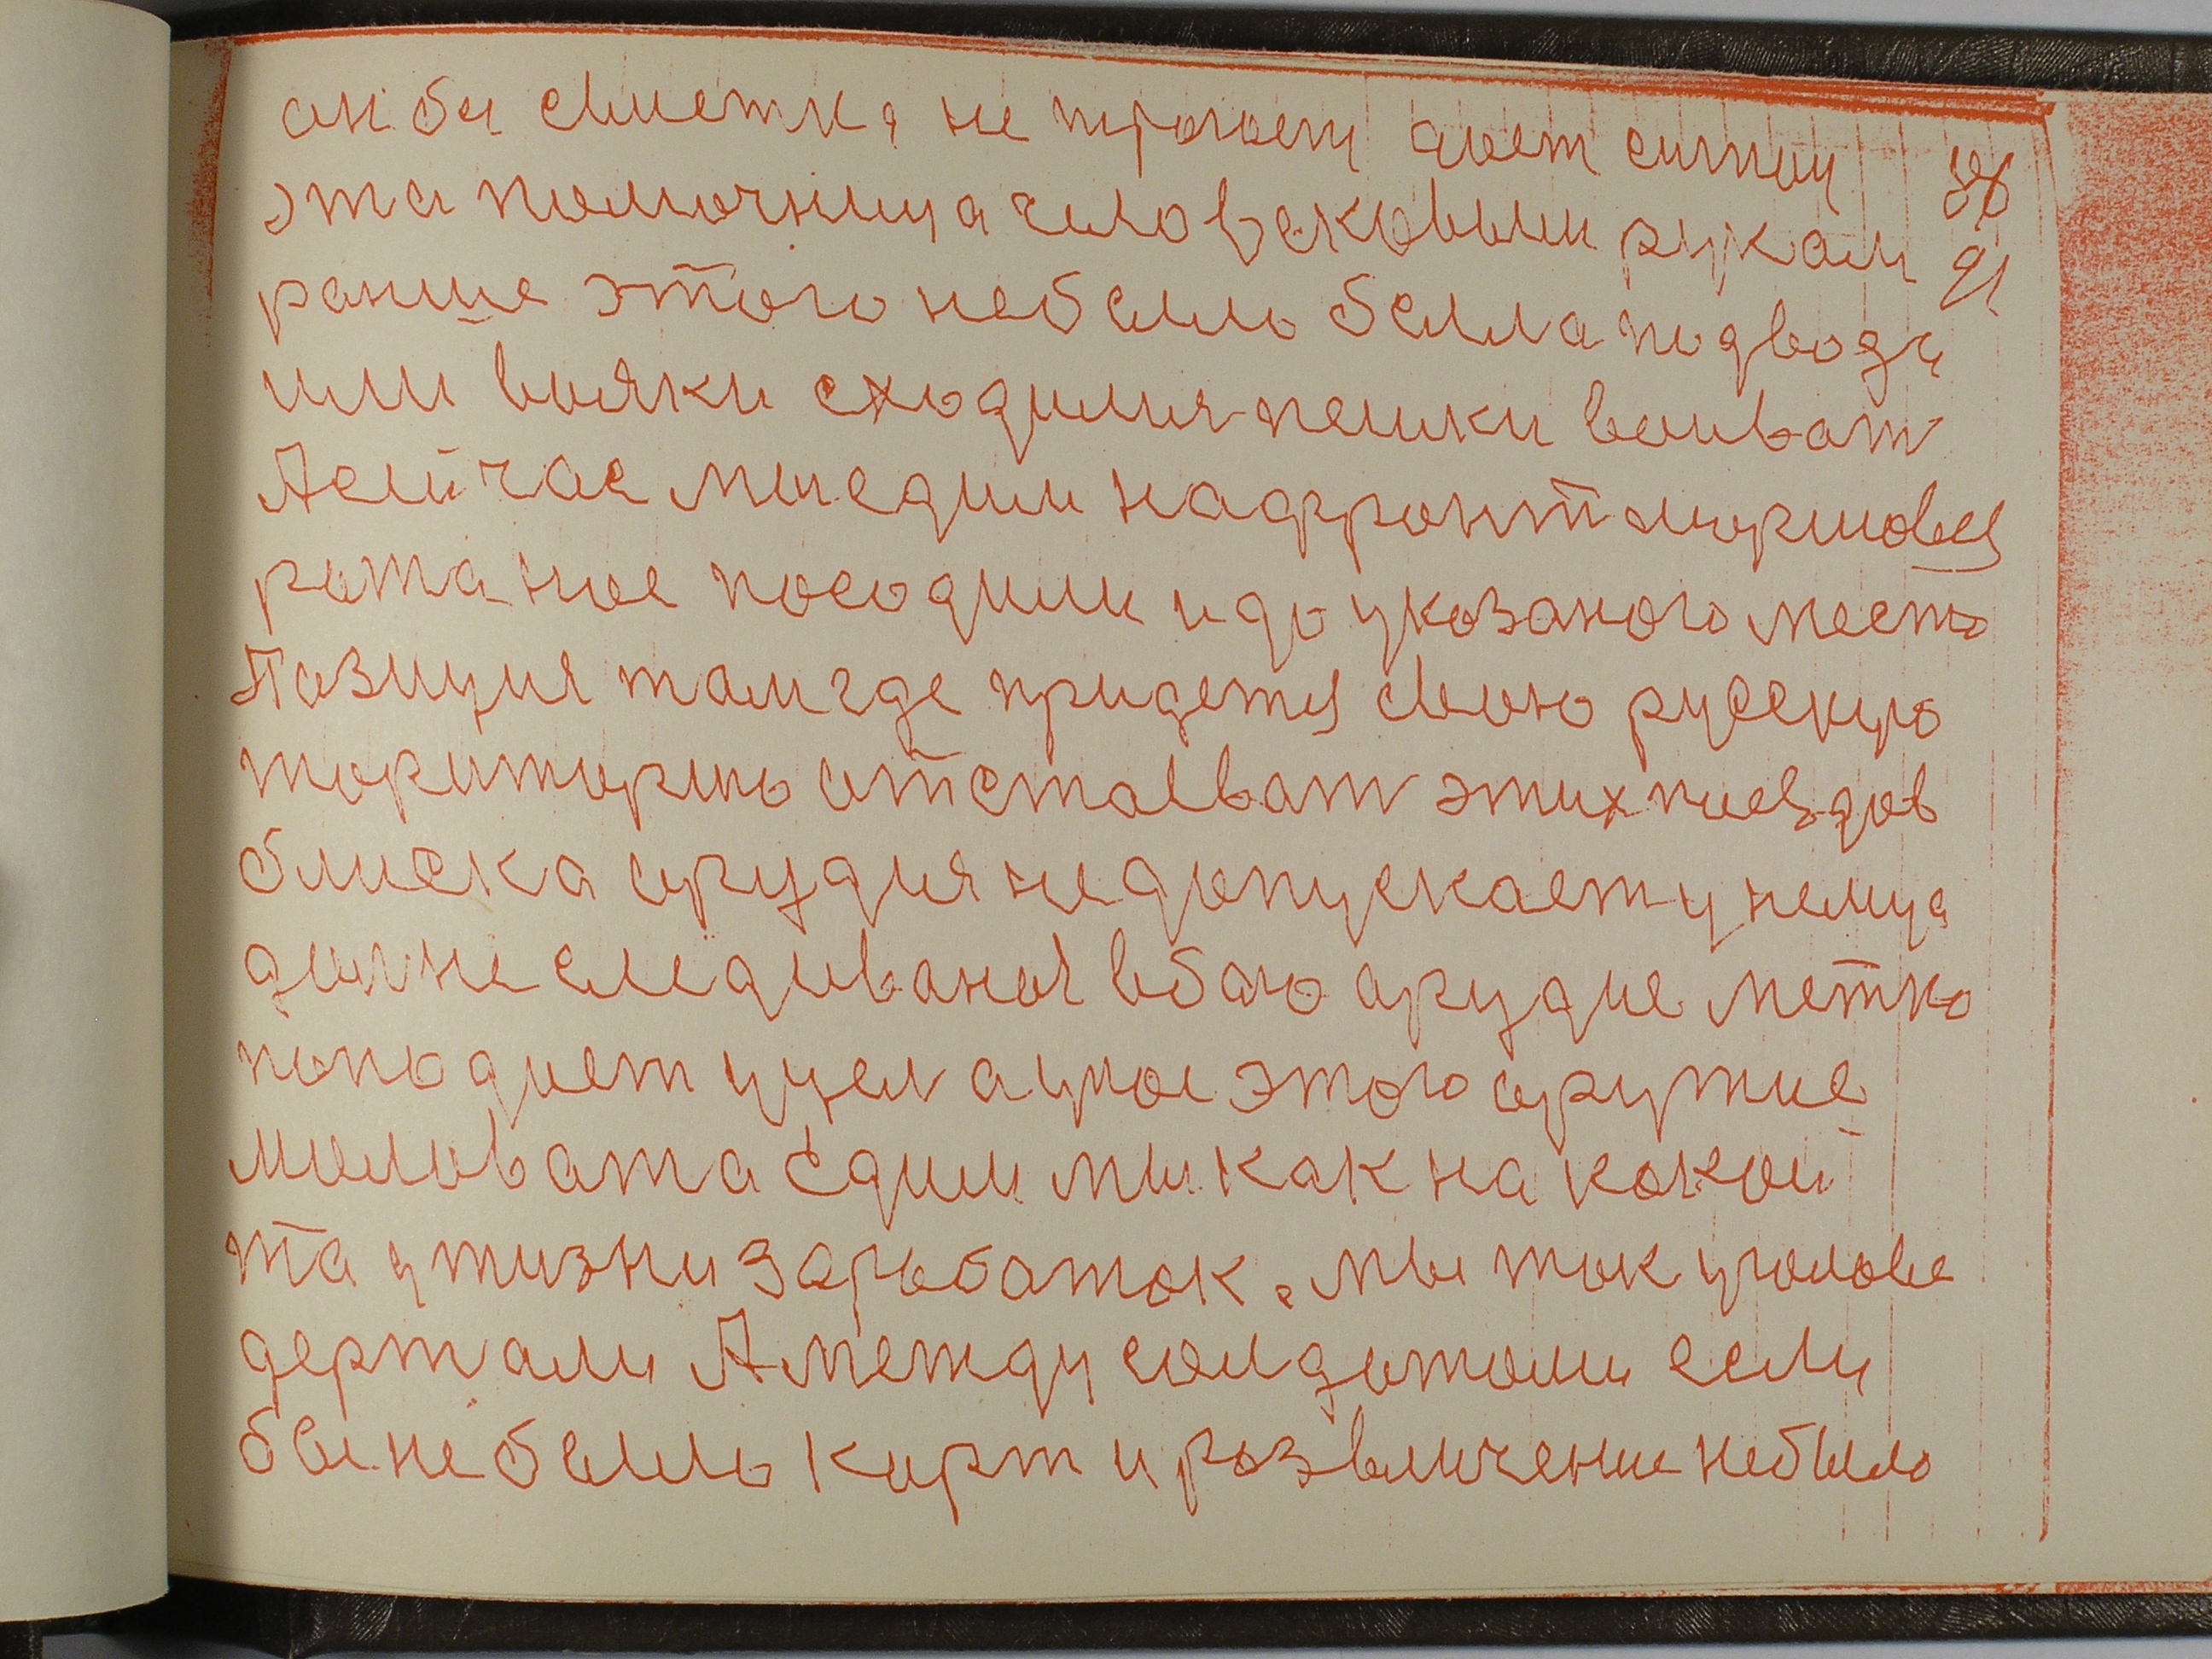 он бы свистка не трогает дает силы
эта помочница человековыми рукам
ранше этого небыло была подводы
или вояки сходилия пешки воиват
Асейчас мы едим нафронт моршовея
рота нас посодили и до указаного место
Позиция там где придетця свою русскую
ториторию отстаевват этих поездов
блиска орудия не допускает у немца
долне следиваноя вбою арудие метко
поподает уцел а унас этого орутие
моловата Едим мы как на какой
та у жизни заработок. мы так уголове
держали А между солдотоми если
бы не было карт и розвличение небыло
91